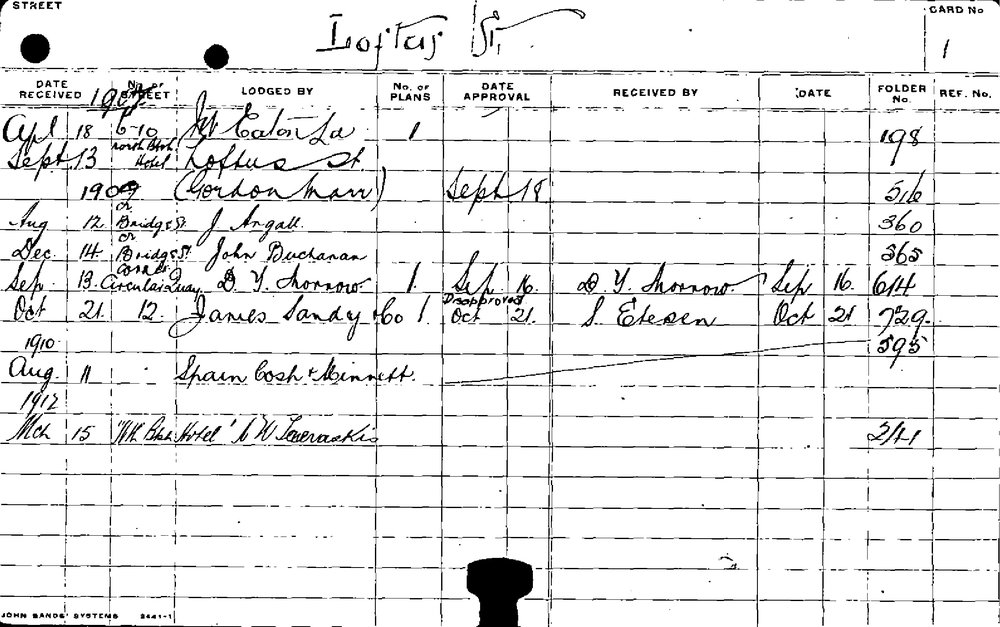 STREET
CARD No
Loftus St.
1
DATE RECEIVED No. OF STREET LODGED BY No. OF PLANS DATE APPROVAL RECEIVED BY DATE FOLDER No. REF. No.
1907
Apl 18 6-10 Eaton 1 198
Sept 13 north Btsh Hotel Loftus St.
1909 (Gordon Marr) Sept 18 516
or
Aug 12 Bridge St. J Angall 360
or
Dec. 14. Bridge St John Buchanan 565
corner
Sep 13. Circular Quay D. Y. Morrow 1. Sep 16. D. Y. Morrow Sep 16. 614
Disapproved
Oct 21. 12. James Sandy & Co 1. Oct 21. S. Oct 21 729.
1910. 595
Aug. 11 Spain Cosh & Minnett.
1912
Mch 15 "Nth Btsh Hotel" 241
JOHN SANDS' SYSTEMS 2441-1